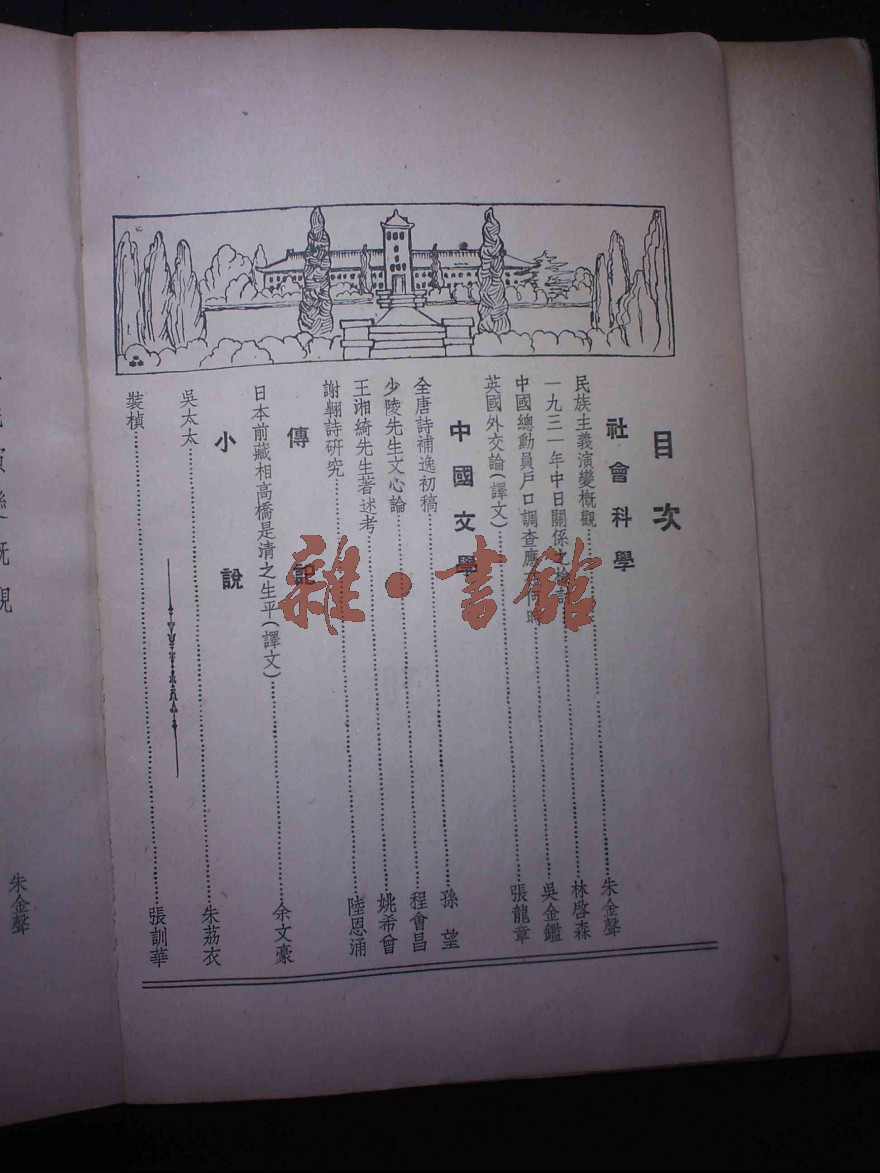 目次
社會科學
民族主義演變概觀 朱金聲
一九三一年中日關係之檢討 林啓森
中國總動員戶口調查應 何時 吳金鑑
英國外交論(譯文) 張龍章
中國文學
全唐詩補逸初稿 孫望
少陵先生文心論 程會昌
王湘綺先生著述考 姚希曾
謝翺詩研究 陸恩涌
傳記
日本前藏相高橋是清之生平(譯文) 余文豪
小說
吳太太 朱荔衣
裝楨 張訓華
雜·書館
演變概觀
朱金聲